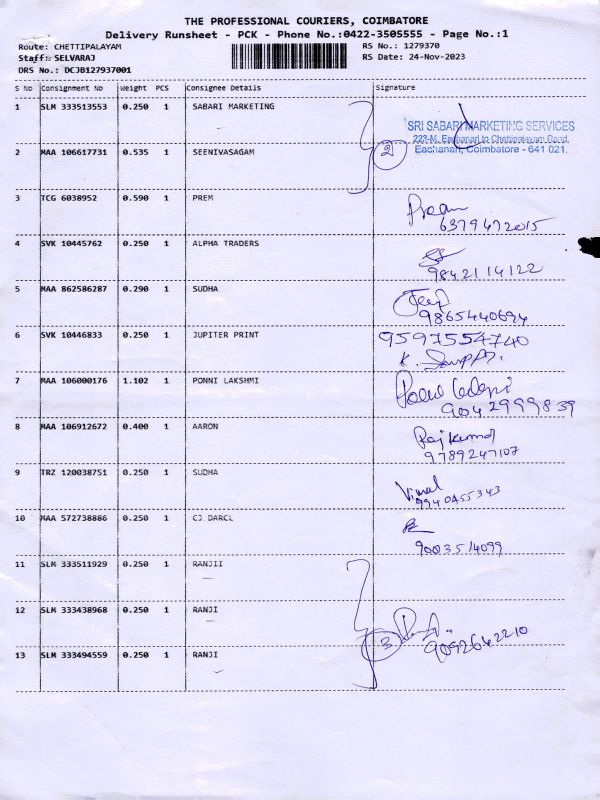 THE PROFESSIONAL COURIERS, COIMBATORE
Delivery Runsheet - PCK - Phone No.:0422-3505555 - Page No.:1
Route: CHETTIPALAYAM RS No.: 1279370
Staff: SELVARAJ RS Date: 24-Nov-2023
DRS No.: DCJB127937001
S No Consignment No Weight PCS Consignee Details Signature
1 SLM 333513553 0.250 1 SABARI MARKETING
SRI SABARI MARKETING SERVICES
223-M, Eachanari to Chettipalayam Road,
Eachanari, Coimbatore - 641 021.
2 MAA 106617731 0.535 1 SEENIVASAGAM 2
3 TCG 6038952 0.590 1 PREM Prem
6379472015
4 SVK 10445762 0.250 1 ALPHA TRADERS
9842114122
5 MAA 862586287 0.290 1 SUDHA
9865440694
6 SVK 10446833 0.250 1 JUPITER PRINT 9597554740
K.
7 MAA 106000176 1.102 1 PONNI LAKSHMI
9042999839
8 MAA 106912672 0.400 1 AARON Rajkumar
9789247107
9 TRZ 120038751 0.250 1 SUDHA Vimal
9940455343
10 MAA 572738886 0.250 1 CJ DARCL
9003514099
11 SLM 333511929 0.250 1 RANJII
12 SLM 333438968 0.250 1 RANJI
3 9092642210
13 SLM 333494559 0.250 1 RANJI